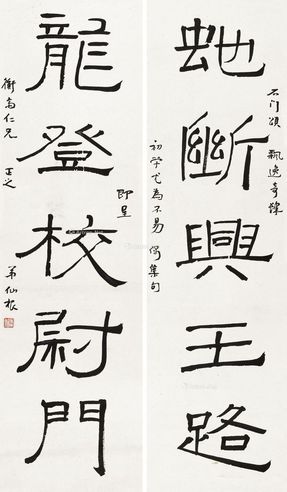 石门頌 飄逸奇
虵斷興王路
初学尤為不易 偶集句
即呈
龍登校尉門
衡高仁兄 正之
弟仙根